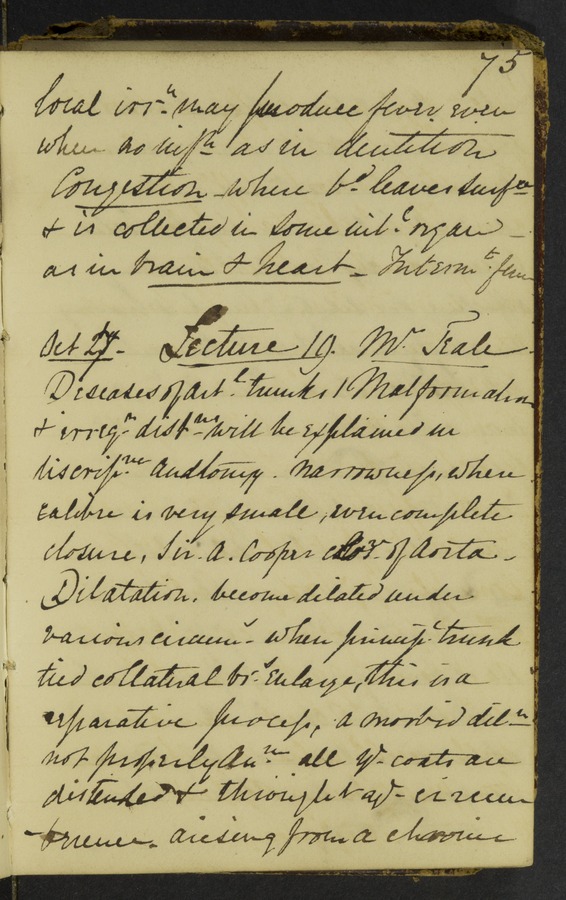 75
local irr.n may produce fever even
when no inf.n as in dentition
Congestion - where bd leaves surf.ce
& is collected in some int.l organ -
as in brain & heart - Interm.t fever
Oct 27. Lecture 19. Mr Teale
Diseases of art.l trunks 1 Malformation
& irreg.r dist.ns will be explained in
discrip.ve anatomy. narrowness, where
calibre is very small, even complete
closure, Sir. A. Cooper of aorta -
Dilatation. become dilated under
various circums - when princip.l trunk
tied collateral brs enlarge, this is a
reparative process, a morbid dil.n
not properly An.m all ye coats are
distended & throughout ye circum
ference. arising from a chronic